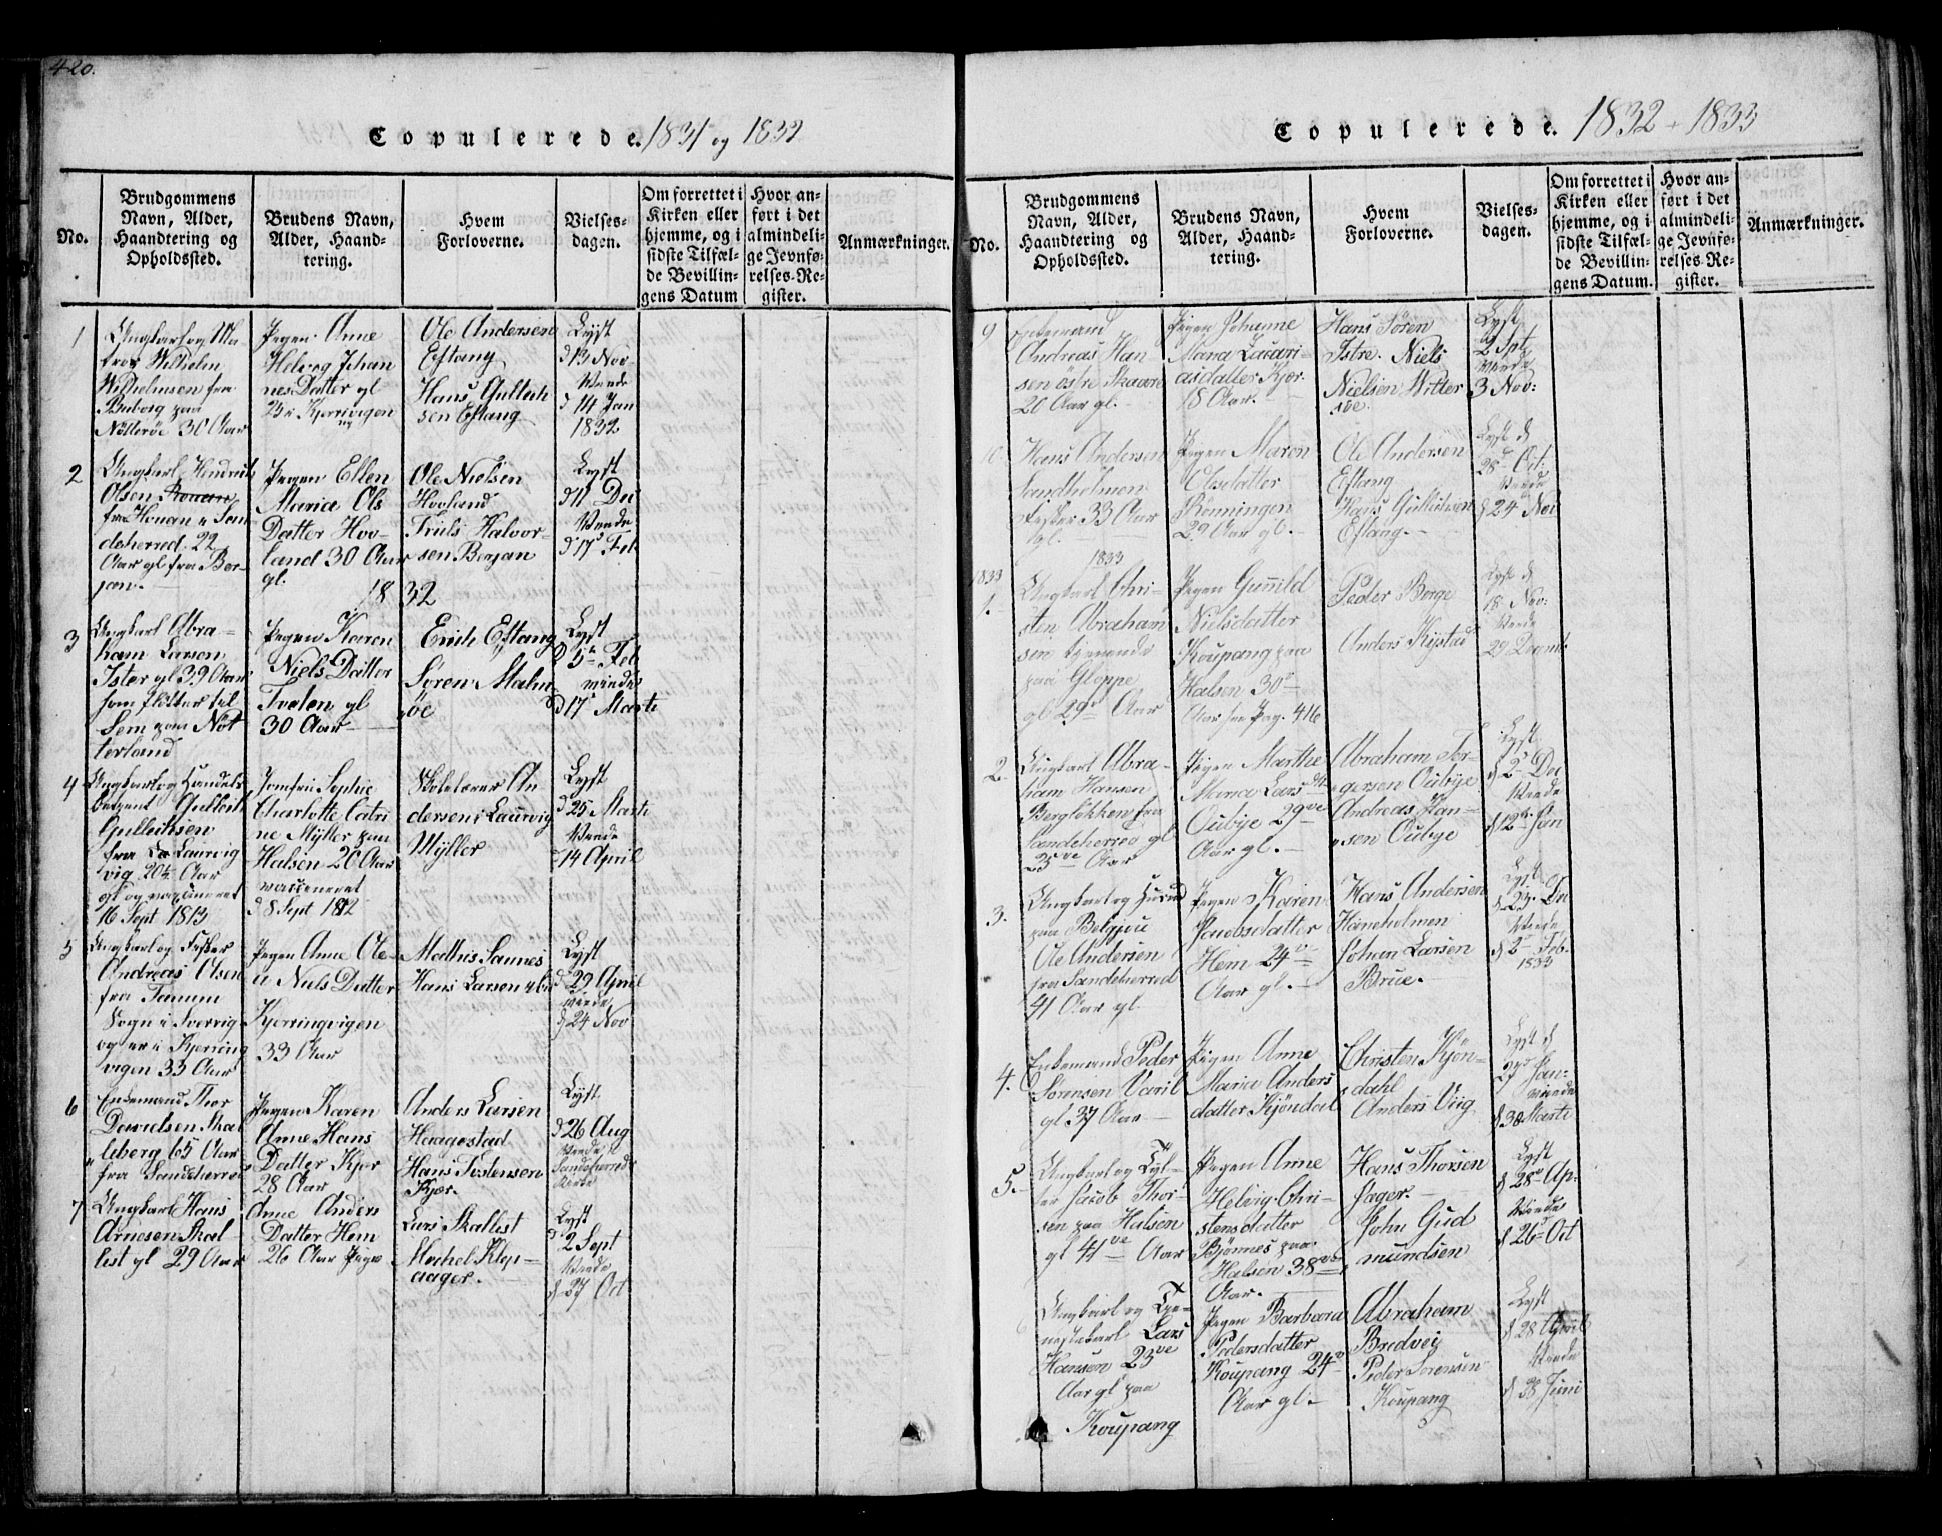 420.
Copulerede. 1831 og 1832
No.
Brudgommens
Navn, Alder,
Haandtering og
Opholdssted.
Brudens Navn,
Alder, Haand-
tering.
Hvem
Forloverne.
Vielses-
dagen.
Om forrettet i
Kirken eller
hjemme, og i
sidste Tilfæl-
de Bevillin-
gens Datum
Hvor an-
ført i det
almindeli-
ge Jevnfø-
relses-Re-
gister.
Anmærkninger.
1
Ungkarl og Ma-
tros Wilhelm
Wilhelmsen fra
Buborg paa
Nötteröe 30 Aar
Pigen Anne
Helvog Johan
nes Datter gl
23 i Kjerrvigen
Ole Andersen
Eftang
Hans Gullich
sen Eftang
Lyst
d 13 Nov
Viede
d 14 Jan
1832
2
Ungkarl Hendrich
Olsen
fra Houan i San
deherred 22
Aar gl fra Ber-
jan.
Pigen Ellen
Maria Ols
Datter Hov-
land 30 Aar
gl.
Ole Nielsen
Hovland
Truls Halvor-
sen Berjan
Lyst
d 11 Dec
Viede
d 17 Feb
1832
3
Ungkarl Abra-
ham Larsen
Ister gl 39 Aar
som flötter til
Sem paa Nöt
terland
Pigen Karen
Niels Datter
Tveten gl
30 Aar
Erich Eftang
Sören Malm
öe
Lyst
d 5te Feb
viede
d 17 Marti
4
Ungkarl og Handels
betient Gullich
Gullichsen
fra Laurvig
vig 20½ Aar
gl og vaccineret
16 Sept 1813
Jomfru Sophie
Charlotte Catri
ne Myller paa
Halsen 20 Aar
vacceneret
d 8 Sept 1812
Skolelærer An
dersen i Laurvig
Myller
Lyst
d 25 Marti
Viede
14 April
5
Ungkarl og Fisker
Andreas Olsen
fra Tanum
Sogn i
og er i Kjerring
vigen 33 Aar
Pigen Anne Ole-
a Niels Datter
Kjerringvigen
33 Aar
Mathis Saunes
Hans Larsen
Lyst
d 29 April
viede
d 24 Nov
6
Enkemand Thor
Davidsen Skal
leberg 65 Aar
fra Sandeherred
Pigen Karen
Anne Hans
Datter Kjer
28 Aar
Anders Larsen
Haagestad
Hans Tostensen
Kjær.
Lyst
d 26 Aug
Viede i
Sandeherreds
Kirke
7
Ungkarl Hans
Arnesen Skal
list gl 29 Aar
Anne Anders
Datter Hem
26 Aar Pige
Lars Skallist
Mathel Klop-
aager.
Lyst
d 2 Sept
Viede
d 27 Oct
Copulerede. 1832 - 1833
No.
Brudgommens
Navn, Alder,
Haandtering og
Opholdssted.
Brudens Navn,
Alder, Haand-
tering.
Hvem
Forloverne.
Vielses-
dagen.
Om forrettet i
Kirken eller
hjemme, og i
sidste Tilfæl-
de Bevillin-
gens Datum.
Hvor an-
ført i det
almindeli-
ge Jevnfø-
relses-Re-
gister.
Anmærkninger.
9
Enkemand
Andreas Han
sen östre Skaare
20 Aar gl.
Pigen Johanne
Maria Zacari-
asdatter Kjer.
18 Aar.
Hans Sören
Istre. Niels
Nielsen Witter
söe.
Lyst
2 Spt
Viede
3 Nov:
10
Hans Andersen
Sandholmen
Fisker 33 Aar
gl.
Pigen Maren
Olsdatter
Rönningen
29 Aar gl.
Ole Andersen
Eftang
Hans Gullichsen
Eftang.
Lyst d
28 Oct:
Viede
d 24 Nov
1833
1833
1.
Ungkarl Chri-
sten Abraham
sen tjenende
paa Gloppe
gl 29 Aar
Pigen Gunild
Nielsdatter
Koupang paa
Halsen 30
Aar see Pag. 416
Peder Borge
Anders Kijstad
Lyst d
18 Nov:
Viede
29 Decmb.
2.
Ungkarl Abra-
ham Hansen
Berglökken fra
Sandeherred gl
25ve Aar
Pigen Marthe
Maria Lars Dtr
Oubye 29ve
Aar gl.
Abraham Tor-
gersen Oubye
Andreas Han-
sen Oubye
Lyst
d 2 Dec
Viede
d 12te Jan
3.
Ungkarl og Huusm
paa Belgjou
Ole Andersen
fra Sandeherred
41 Aar gl.
Pigen Karen
Jacobsdatter
Hem 24
Aar gl.
Hans Andersen
Haneholmen
Johan Larsen
Brue.
Lyst
d 29 Dec
Viede
d 2 Feb.
1833
4.
Enkemand Peder
Sörensen Varil
gl 37 Aar
Pigen Anne
Maria Anders
datter Kjöndal
Christen Kjön-
dahl
Anders Viig
Lyst d
27 Jan-
viede
d 30 Marti
5.
Ungkarl og Tyl-
ter Jacob Thor-
sen paa Halsen
gl 41ve Aar
Pigen Anne
Helvig Chri-
stensdatter
Bjönnes paa
Halsen 38ve
Aar.
Hans Thorsen
Jager.
John Gud
mundsen
Lyst
d 28 Ap.
Viede
d 26 Oct
6
Ungkarl og Tje-
nestekarl Lars
Hansen 23ve
Aar gl paa
Koupang
Pigen Barbara
Pedersdatter
Koupang 24
Aar gl.
Abraham
Bredvei
Peder Sörensen
Koupang
Lyst
d 28 April
Viede
d 28 Juni